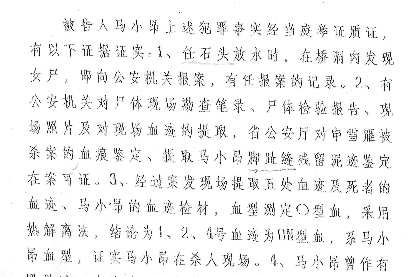 被告人马小昂上述犯罪事实经当庭举证质证，
有以下证据证实：1、任石头放水时，在桥洞内发现
女尸，即向公安机关报案，有任报案的记录。2、有
公安机关对尸体现场勘查笔录、尸体检验报告、现
场照片及对现场血迹的提取，省公安厅对申雪雁被
杀案的血痕鉴定、提取马小昂脚趾缝残留泥迹鉴定
在案可证。3、经过案发现场提取五处血迹及死者的
血迹、马小昂的血迹检材，血型测定O型血，采用
热解离法，结论为1、2、4号血迹为ON型血，系马小
昂血型，证实马小昂在杀人现场。4、马小昂曾作有